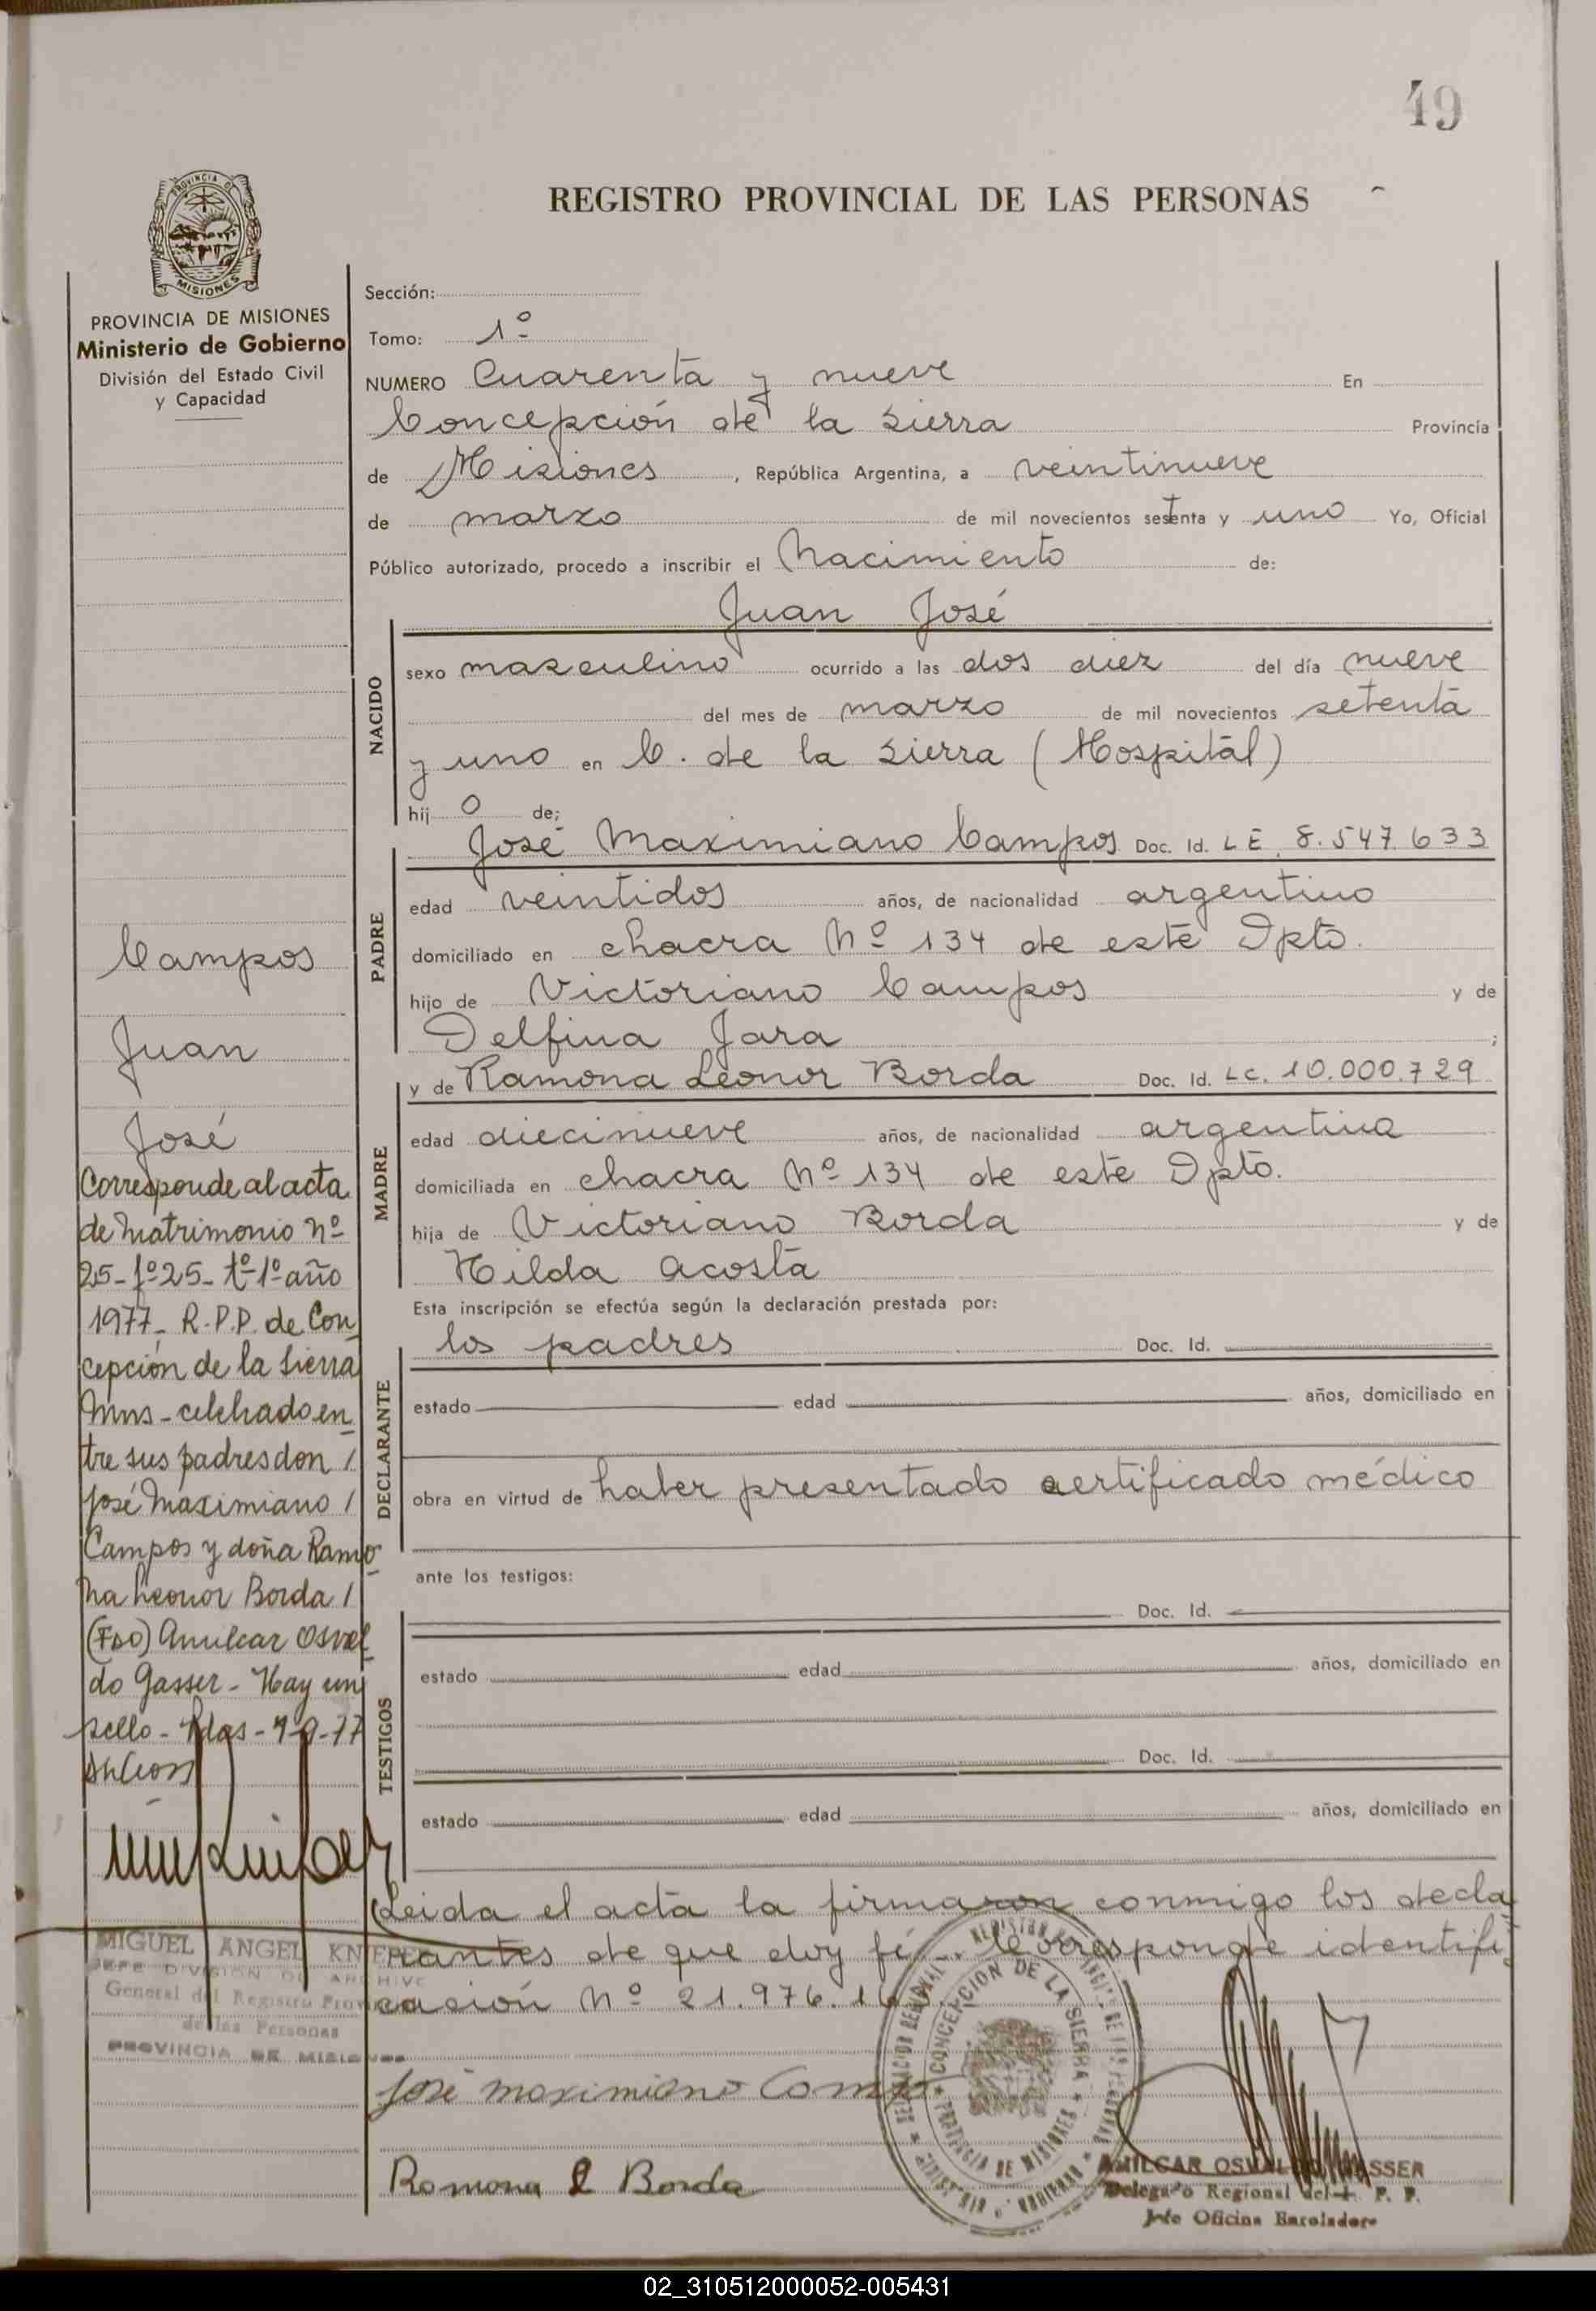 49
REGISTRO PROVINCIAL DE LAS PERSONAS
PROVINCIA DE
MISIONES
PROVINCIA DE MISIONES
Ministerio de Gobierno
División del Estado Civil
y Capacidad
Sección:
Tomo: 1º
NUMERO Cuarenta y nueve En
Concepción de la Sierra Provincia
de Misiones, República Argentina, a veintinueve
de marzo de mil novecientos setenta y uno Yo, Oficial
Público autorizado, procedo a inscribir el Nacimiento de:
Juan José
NACIDO
sexo masculino ocurrido a las dos diez del día nueve
del mes de marzo de mil novecientos setenta
y uno en C. de la Sierra (Hospital)
hijo de;
José Maximiano Campos Doc. Id. LE. 8.547.633
PADRE
edad veintidos años, de nacionalidad argentino
domiciliado en chacra Nº 134 de este Dpto.
hijo de Victoriano Campos y de
Delfina Jara ;
y de Ramona Leonor Borda Doc. Id. LC. 10.000.729
MADRE
edad diecinueve años, de nacionalidad argentina
domiciliada en chacra Nº 134 de este Dpto.
hija de Victoriano Borda y de
Hilda Acosta
Esta inscripción se efectúa según la declaración prestada por:
los padres Doc. Id.
DECLARANTE
estado edad años, domiciliado en
obra en virtud de haber presentado certificado médico
ante los testigos:
Doc. Id.
TESTIGOS
estado edad años, domiciliado en
Doc. Id.
estado edad años, domiciliado en
Leida el acta la firmaron conmigo los decla
rantes de que doy fé... le corresponde identifi
cación Nº 21.976.16
José Maximiano Campos
Ramona L Borda
CONCEPCION DE LA SIERRA
PROVINCIA DE MISIONES
AMILCAR OSVALDO GASSER
Delegado Regional del R. P. P.
Jefe Oficina Enroladora
Campos
Juan
José
Corresponde al acta
de Matrimonio nº
25-fº25-tº1º año
1977- R.P.P. de Con
cepción de la Sierra
Mns - celebrado en
tre sus padres don /
José Maximiano /
Campos y doña Ramo
na Leonor Borda /
(Fdo) Amilcar Osval
do Gasser - Hay un
sello - Pdas -
MIGUEL ANGEL
JEFE DIVISION DE ARCHIVO
General del Registro Prov
de las Personas
PROVINCIA DE MISIONES
02_310512000052-005431